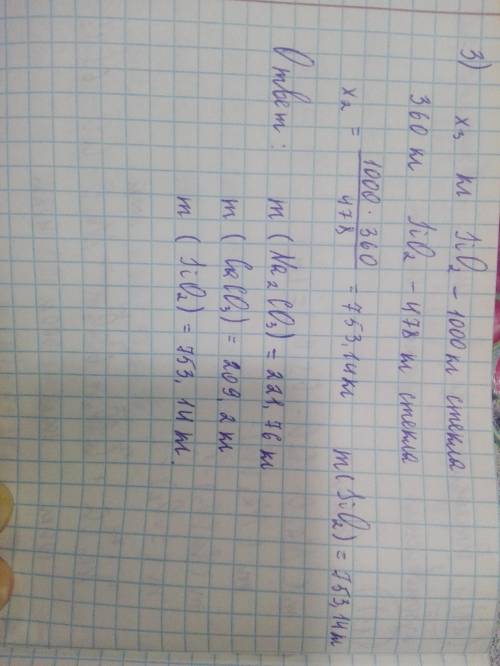 3) x₃ кг SiO₂ – 1000 кг стекла
360 кг SiO₂ – 478 кг стекла
x₂ = 1000 · 360 / 478 = 753,14 кг m(SiO₂) = 753,14 кг
Ответ: m(Na₂CO₃) = 221,76 кг
m(CaCO₃) = 209,2 кг
m(SiO₂) = 753,14 кг.